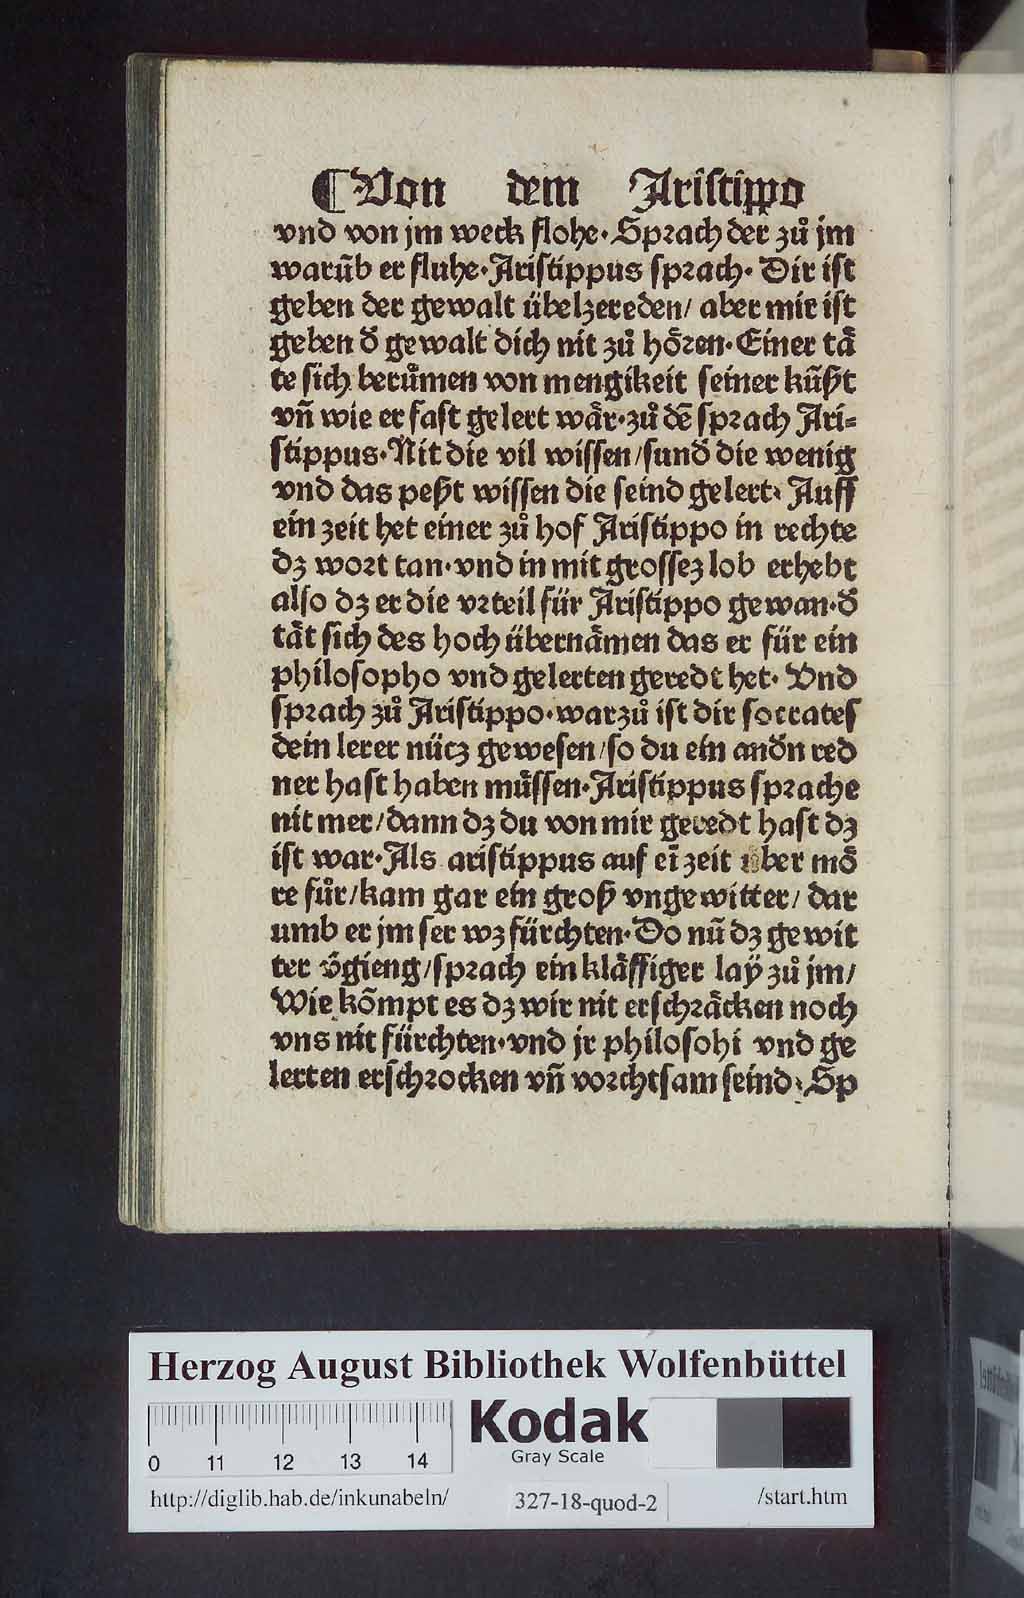 ⸿ Von dem Aristippo
vnd von jm weck flohe. Sprach der zů jm
warūb er fluhe. Aristippus sprach. Dir ist
geben der gewalt übelzereden/ aber mir ist
geben đ gewalt dich nit zů hören. Einer tä
te sich berůmen von mengikeit seiner kūßt
vñ wie er fast gelert wär. zů dē sprach Ari⸗
stippus. Nit die vil wissen/ sunđ die wenig
vnd das peßt wissen die seind gelert. Auff
ein zeit het einer zů hof Aristippo in rechte
dz wort tan. vnd in mit grossez lob erhebt
also dz er die vrteil für Aristippo gewan. đ
tät sich des hoch übernämen das er für ein
philosopho vnd gelerten geredt het. Vnd
sprach zů Aristippo. warzů ist dir socrates
dein lerer nücz gewesen/ so du ein anđn red
ner hast haben müssen. Aristippus sprache
nit mer/ dann dz du von mir geredt hast dz
ist war. Als aristippus auf eī zeit über mö
re fůr/ kam gar ein groß vngewitter/ dar
umb er jm ser wz fürchten. Do nū dz gewit
ter v̄gieng/ sprach ein kläffiger laÿ zů jm/
Wie kōmpt es dz wir nit erschräcken noch
vns nit fürchten. vnd jr philosohi vnd ge
lerten erschrocken vñ vorchtsam seind. Sp
Herzog August Bibliothek Wolfenbüttel
0 11 12 13 14
Kodak
Gray Scale
http://diglib.hab.de/inkunabeln/ 327-18-quod-2 /start.htm